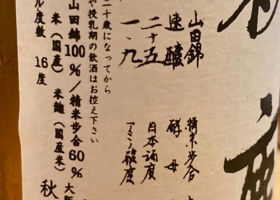 精米歩合
山田錦
酵母
速醸
日本酒度
二十五
アミノ酸度
一・九
二十歳になってから
や授乳期の飲酒はお控え下さい
山田錦100%/精米歩合60%
米(国産) 米麹(国産米)
ル度数 16度
大阪
秋